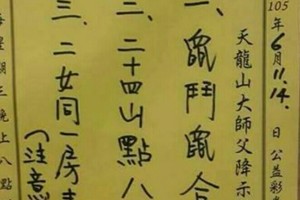 105年6月11.14.日公益彩
天龍山大師父降示
一、鼠鬥鼠合
二、二十四山點八
三、二女同一房
(注意
每星期三晚上八點